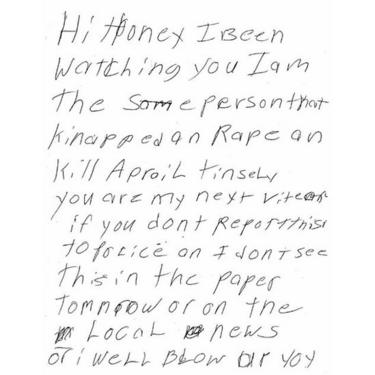 Hi Honey I Been
Watching you I am
The Same person that
kinapped an Rape an
Kill Aproil Tinsely
you are my next Vitem
if you dont Report this
to police an I don't see
This in the paper
Tomrrow or on the
Local news
or i Well Blow ur yoy